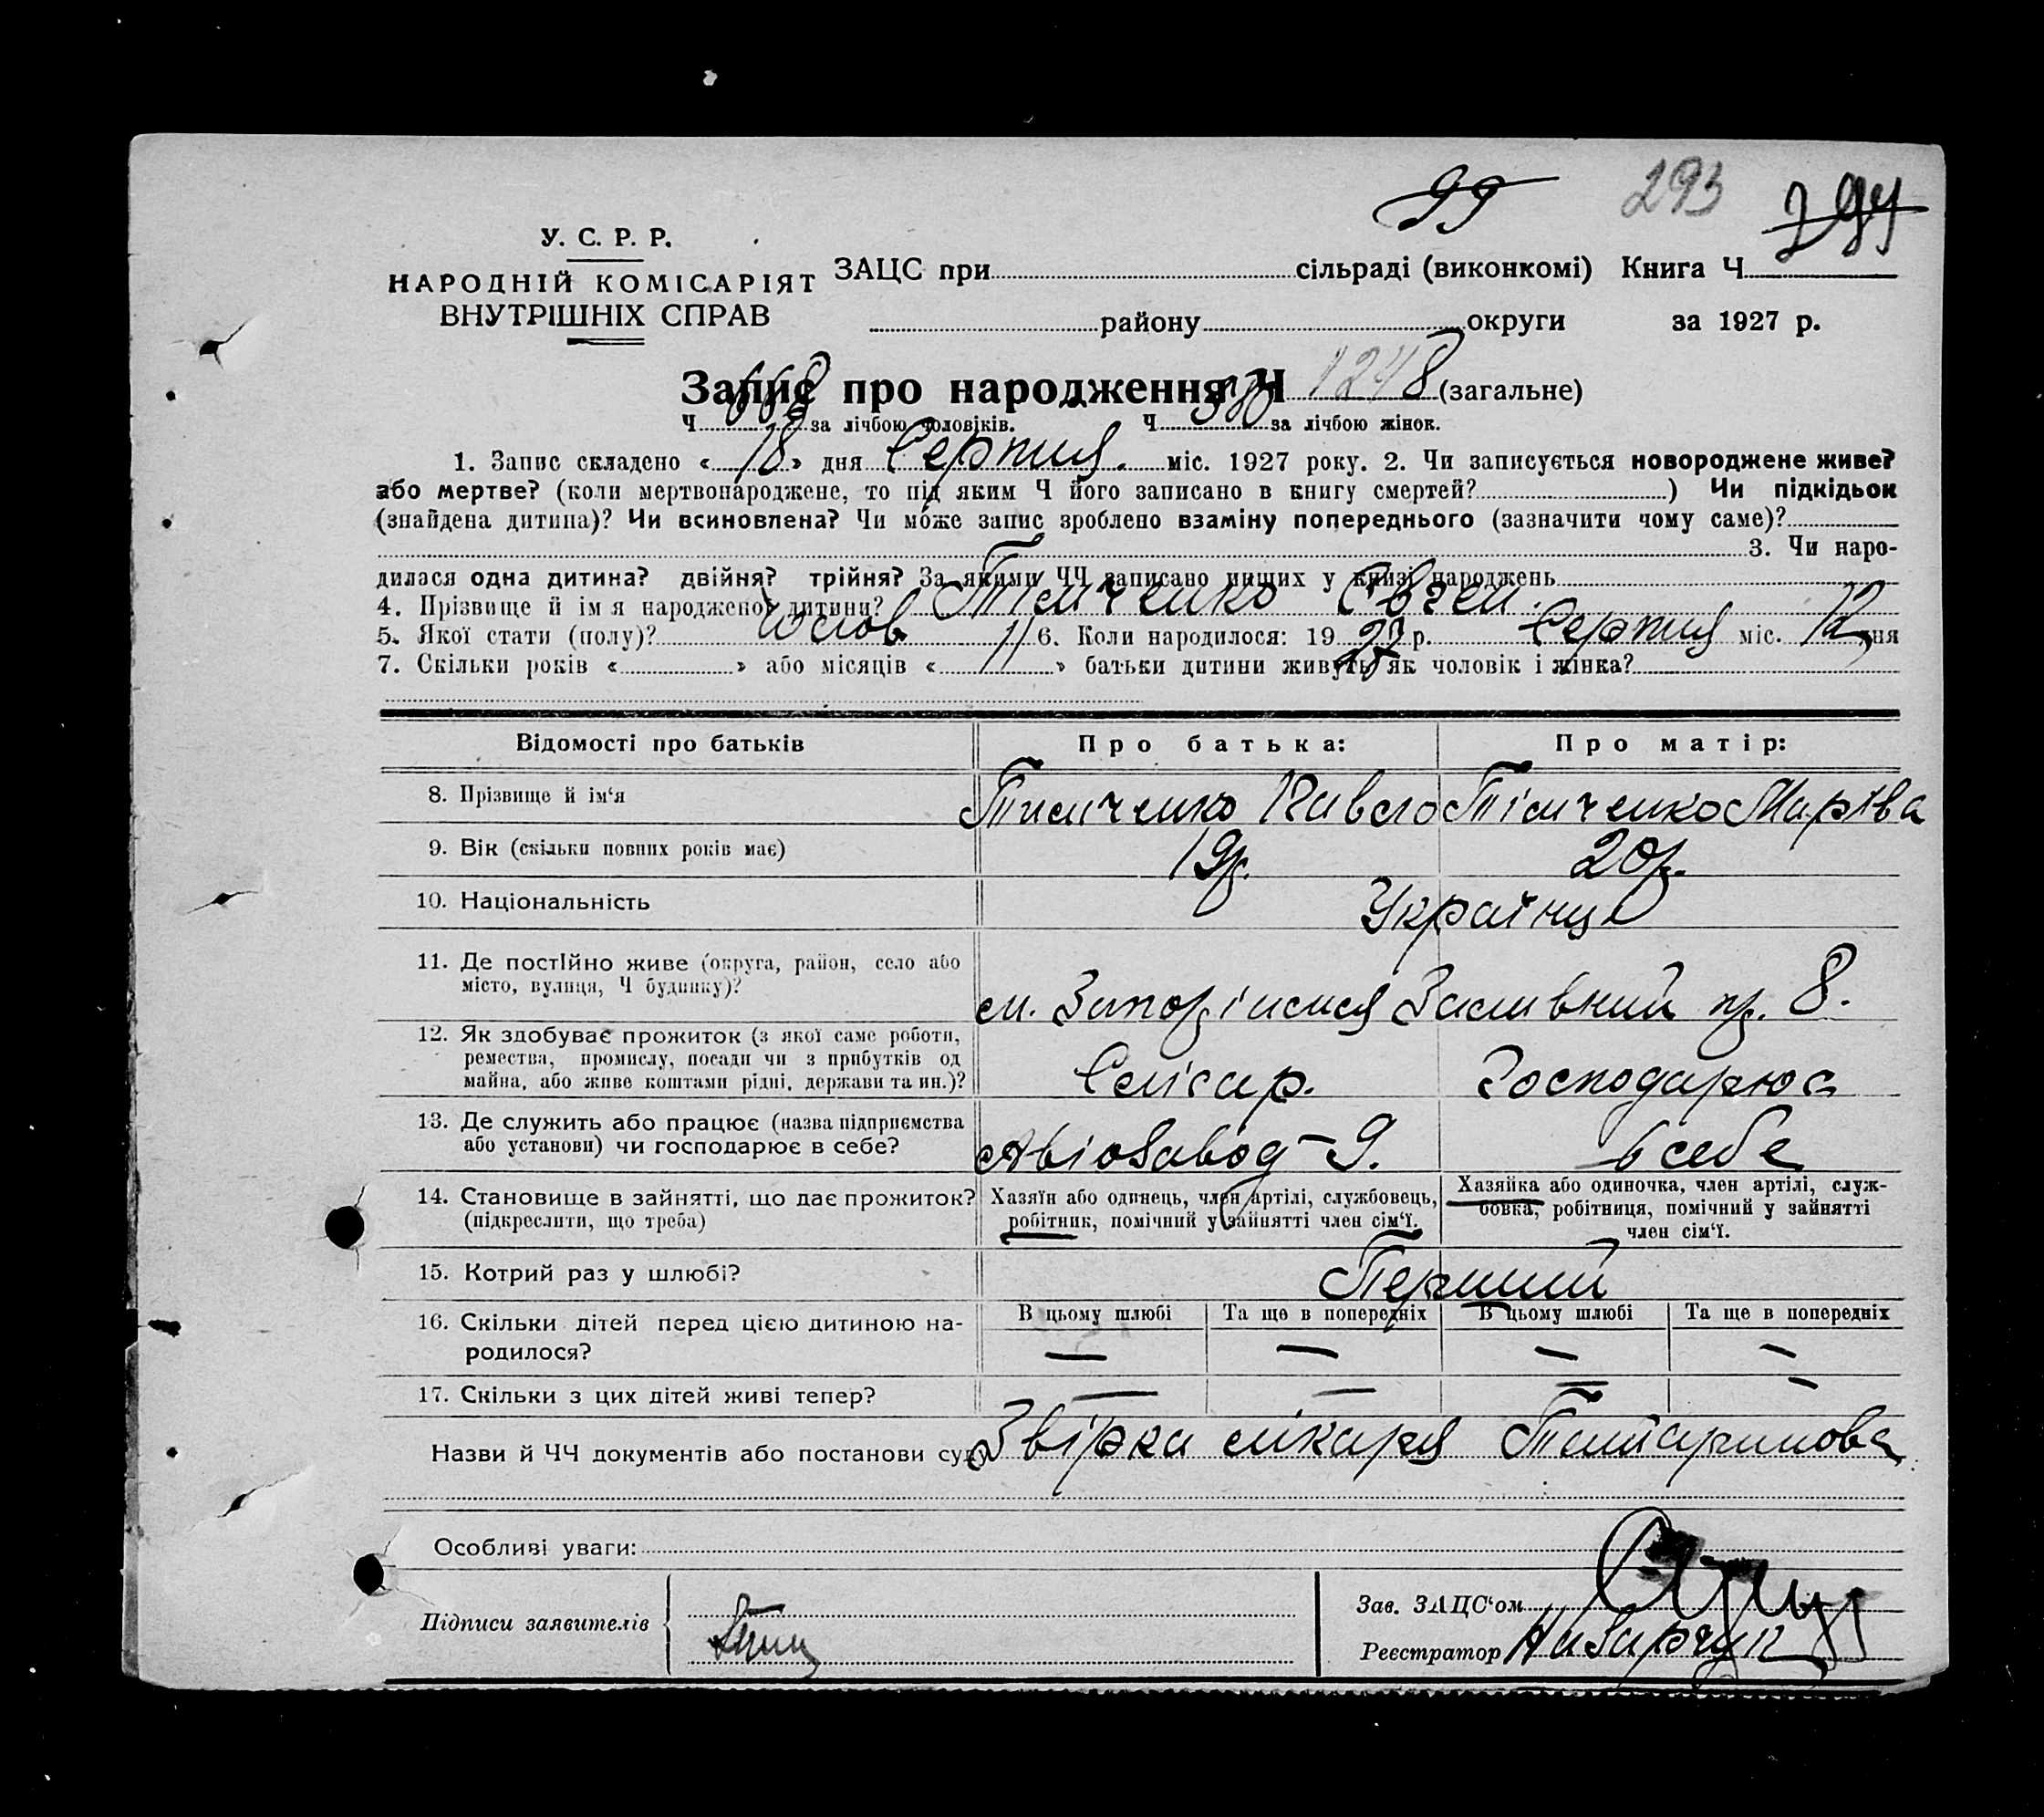 99 293 294
У. С. Р. Р.
НАРОДНІЙ КОМІСАРІЯТ
ВНУТРІШНІХ СПРАВ
ЗАЦС при сільраді (виконкомі) Книга Ч
району округи за 1927 р.
Запис про народження Ч 1248 (загальне)
Ч 668 за лічбою чоловіків. Ч 580 за лічбою жінок.
1. Запис складено « 18 » дня Серпня. міс. 1927 року. 2. Чи записується новороджене живе?
або мертве? (коли мертвонароджене, то під яким Ч його записано в книгу смертей? ) Чи підкідьок
(знайдена дитина)? Чи всиновлена? Чи може запис зроблено взаміну попереднього (зазначити чому саме)?
3. Чи наро-
дилася одна дитина? двійня? трійня? За якими ЧЧ записано инших у книзі народжень
4. Прізвище й ім я народженої дитини? Тімченко Євген.
5. Якої стати (полу)? Чолов 6. Коли народилося: 19 27 р. Серпня міс. 12 дня
7. Скільки років « » або місяців « 11 » батьки дитини живуть як чоловік і жінка?
Відомості про батьків Про батька: Про матір:
8. Прізвище й ім‘я Тимченко Павло Тімченко Марфа
9. Вік (скільки повних років має) 19р. 20р.
10. Національність Українці
11. Де постійно живе (округа, район, село або
місто, вулиця, Ч будинку)? м. Запоріжжя Заливний пр. 8.
12. Як здобуває прожиток (з якої саме роботи,
ремества, промислу, посади чи з прибутків од
майна, або живе коштами рідні, держави та ин.)? Слісар. Господарює
13. Де служить або працює (назва підприємства
або установи) чи господарює в себе? Авіозавод – 9. в себе
14. Становище в зайнятті, що дає прожиток?
(підкреслити, що треба)
Хазяїн або одинець, член артілі, службовець,
робітник, помічний у зайнятті член сім‘ї.
Хазяйка або одиночка, член артілі, служ-
бовка, робітниця, помічний у зайнятті
член сім‘ї.
15. Котрий раз у шлюбі? Перший
16. Скільки дітей перед цією дитиною на-
родилося?
В цьому шлюбі Та ще в попередніх В цьому шлюбі Та ще в попередніх
— — — —
17. Скільки з цих дітей живі тепер? — — — —
Назви й ЧЧ документів або постанови суду Звірка лікаря
Особливі уваги:
Підписи заявителів
Зав. ЗАЦС‘ом
Реєстратор